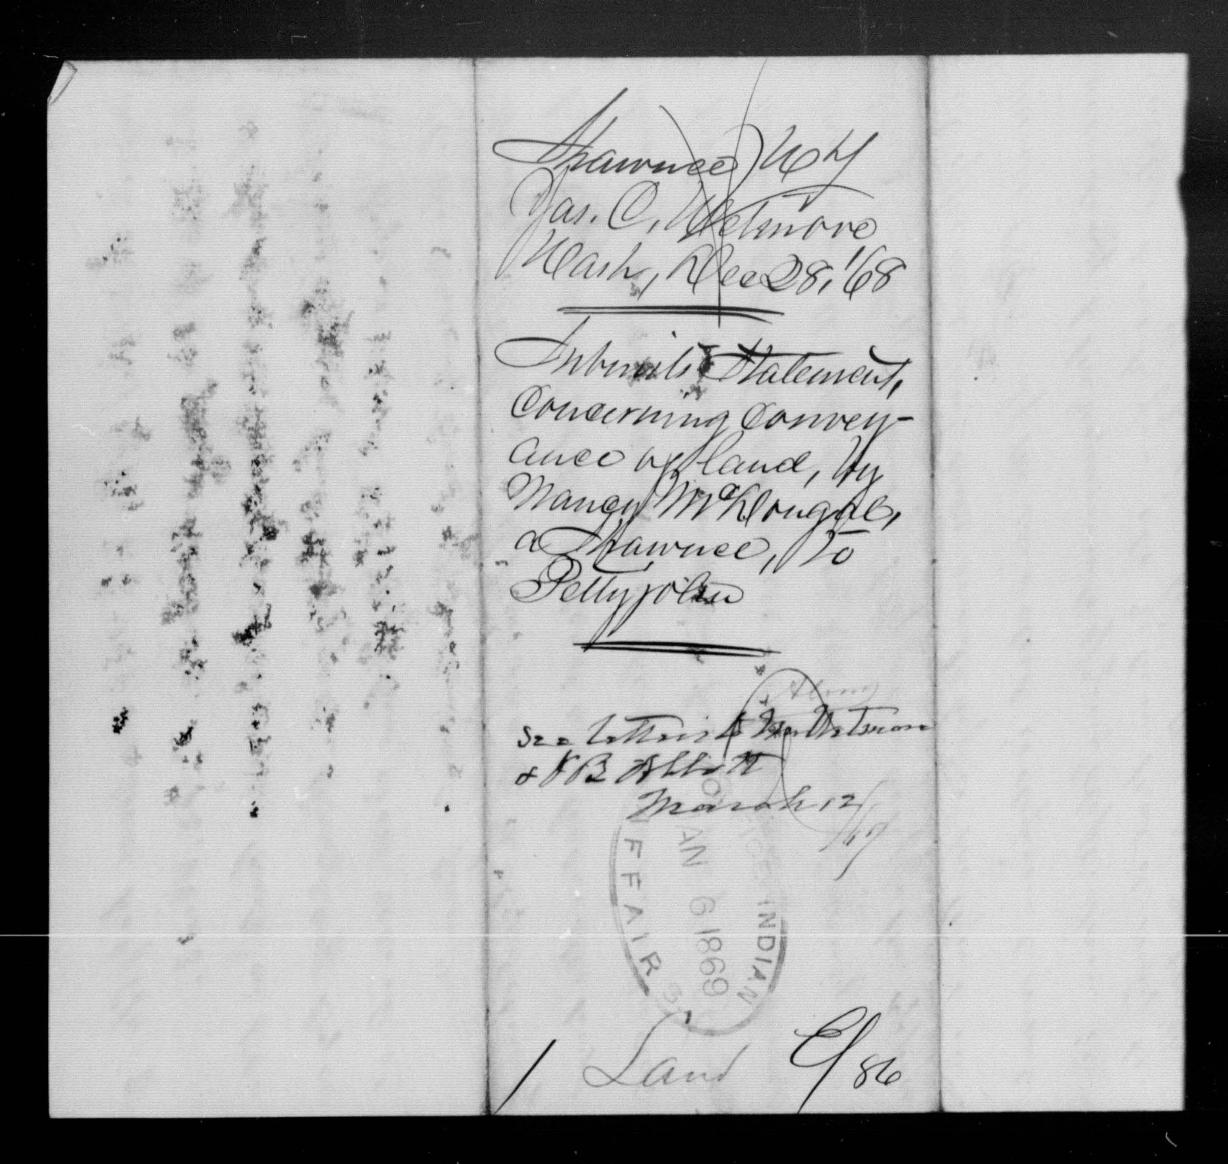 Shawnee
Jas. C. Wetmore
Wash, Dec 28, '68
Submits Statement,
Concerning Convey-
ance of land, by
Nancy McDougal,
a Shawnee, to
Pettyjohn
See letters to Wetmore
& J B Abbott
March 12/
OFFICE INDIAN AFFAIRS
JAN 6 1869
1 Land
86